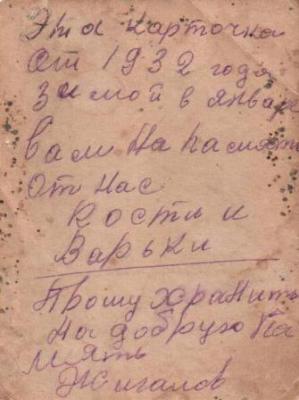 Эта карточка
От 1932 года
зимой в январе
вам На память
От Нас
Кости и
Варьки
Прошу хранить
На добрую Па
мять
Жигалов